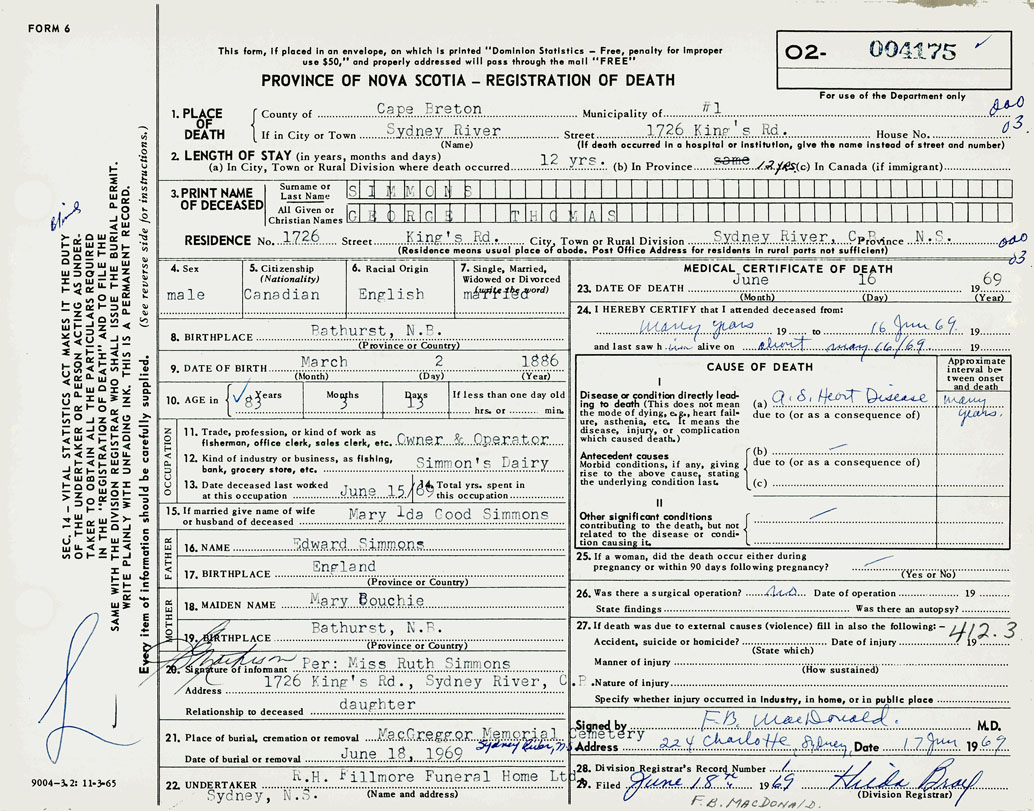 FORM 6
This form, if placed in an envelope, on which is printed "Dominion Statistics – Free, penalty for improper
use $50," and properly addressed will pass through the mail "FREE"
PROVINCE OF NOVA SCOTIA – REGISTRATION OF DEATH
O2- 004175
For use of the Department only
000
03.
1. PLACE OF DEATH
County of Cape Breton Municipality of #1
If in City or Town Sydney River Street 1726 King's Rd. House No.
(Name) (If death occurred in a hospital or institution, give the name instead of street and number)
2. LENGTH OF STAY (in years, months and days)
(a) In City, Town or Rural Division where death occurred 12 yrs. (b) In Province same 12 yrs (c) In Canada (if immigrant)
3. PRINT NAME OF DECEASED
Surname or Last Name SIMMONS
All Given or Christian Names GEORGE THOMAS
RESIDENCE No. 1726 Street King's Rd. City, Town or Rural Division Sydney River, C.B. Province N.S.
(Residence means usual place of abode. Post Office Address for residents in rural parts not sufficient)
000
03
4. Sex
male
5. Citizenship (Nationality)
Canadian
6. Racial Origin
English
7. Single, Married, Widowed or Divorced (write the word)
married
8. BIRTHPLACE Bathurst, N.B.
(Province or Country)
9. DATE OF BIRTH March 2 1886
(Month) (Day) (Year)
10. AGE in Years 83 Months 3 Days 13 If less than one day old
hrs. or min.
OCCUPATION
11. Trade, profession, or kind of work as
fisherman, office clerk, sales clerk, etc. Owner & Operator
12. Kind of industry or business, as fishing,
bank, grocery store, etc. Simmon's Dairy
13. Date deceased last worked
at this occupation June 15/69
14. Total yrs. spent in
this occupation
15. If married give name of wife
or husband of deceased Mary Ida Good Simmons
FATHER
16. NAME Edward Simmons
17. BIRTHPLACE England
(Province or Country)
MOTHER
18. MAIDEN NAME Mary Bouchie
19. BIRTHPLACE Bathurst, N.B.
(Province or Country)
20. Signature of informant Per: Miss Ruth Simmons
Address 1726 King's Rd., Sydney River, C.B.
Relationship to deceased daughter
21. Place of burial, cremation or removal MacGreggor Memorial Cemetery
Sydney River, NS
Date of burial or removal June 18, 1969
22. UNDERTAKER R.H. Fillmore Funeral Home Ltd.
Sydney, N.S. (Name and address)
MEDICAL CERTIFICATE OF DEATH
23. DATE OF DEATH June 16 19 69
(Month) (Day) (Year)
24. I HEREBY CERTIFY that I attended deceased from:
many years 19 to 16 Jun 69. 19
and last saw h im alive on about may 16/69. 19
CAUSE OF DEATH
Approximate interval between onset and death
I
Disease or condition directly leading to death (This does not mean the mode of dying, e.g., heart failure, asthenia, etc. It means the disease, injury, or complication which caused death.)
(a) A.S. Heart Disease many years.
due to (or as a consequence of)
Antecedent causes
Morbid conditions, if any, giving rise to the above cause, stating the underlying condition last.
(b)
due to (or as a consequence of)
(c)
II
Other significant conditions
contributing to the death, but not related to the disease or condition causing it.
25. If a woman, did the death occur either during
pregnancy or within 90 days following pregnancy?
(Yes or No)
26. Was there a surgical operation? no Date of operation 19
State findings Was there an autopsy?
27. If death was due to external causes (violence) fill in also the following: –
412.3
Accident, suicide or homicide? Date of injury 19
(State which)
Manner of injury
(How sustained)
Nature of injury
Specify whether injury occurred in Industry, in home, or in public place
Signed by F.B. MacDonald. M.D.
Address 224 Charlotte, Sydney, Date 17 Jun 19 69
28. Division Registrar's Record Number
29. Filed June 18th 19 69 Hilda Bray
(Division Registrar)
F.B. MACDONALD.
SEC. 14 – VITAL STATISTICS ACT MAKES IT THE DUTY
OF THE UNDERTAKER OR PERSON ACTING AS UNDER-
TAKER TO OBTAIN ALL THE PARTICULARS REQUIRED
IN THE "REGISTRATION OF DEATH" AND TO FILE THE
SAME WITH THE DIVISION REGISTRAR WHO SHALL ISSUE THE BURIAL PERMIT.
WRITE PLAINLY WITH UNFADING INK. THIS IS A PERMANENT RECORD.
Every item of information should be carefully supplied. (See reverse side for instructions.)
9004-3.2: 11-3-65